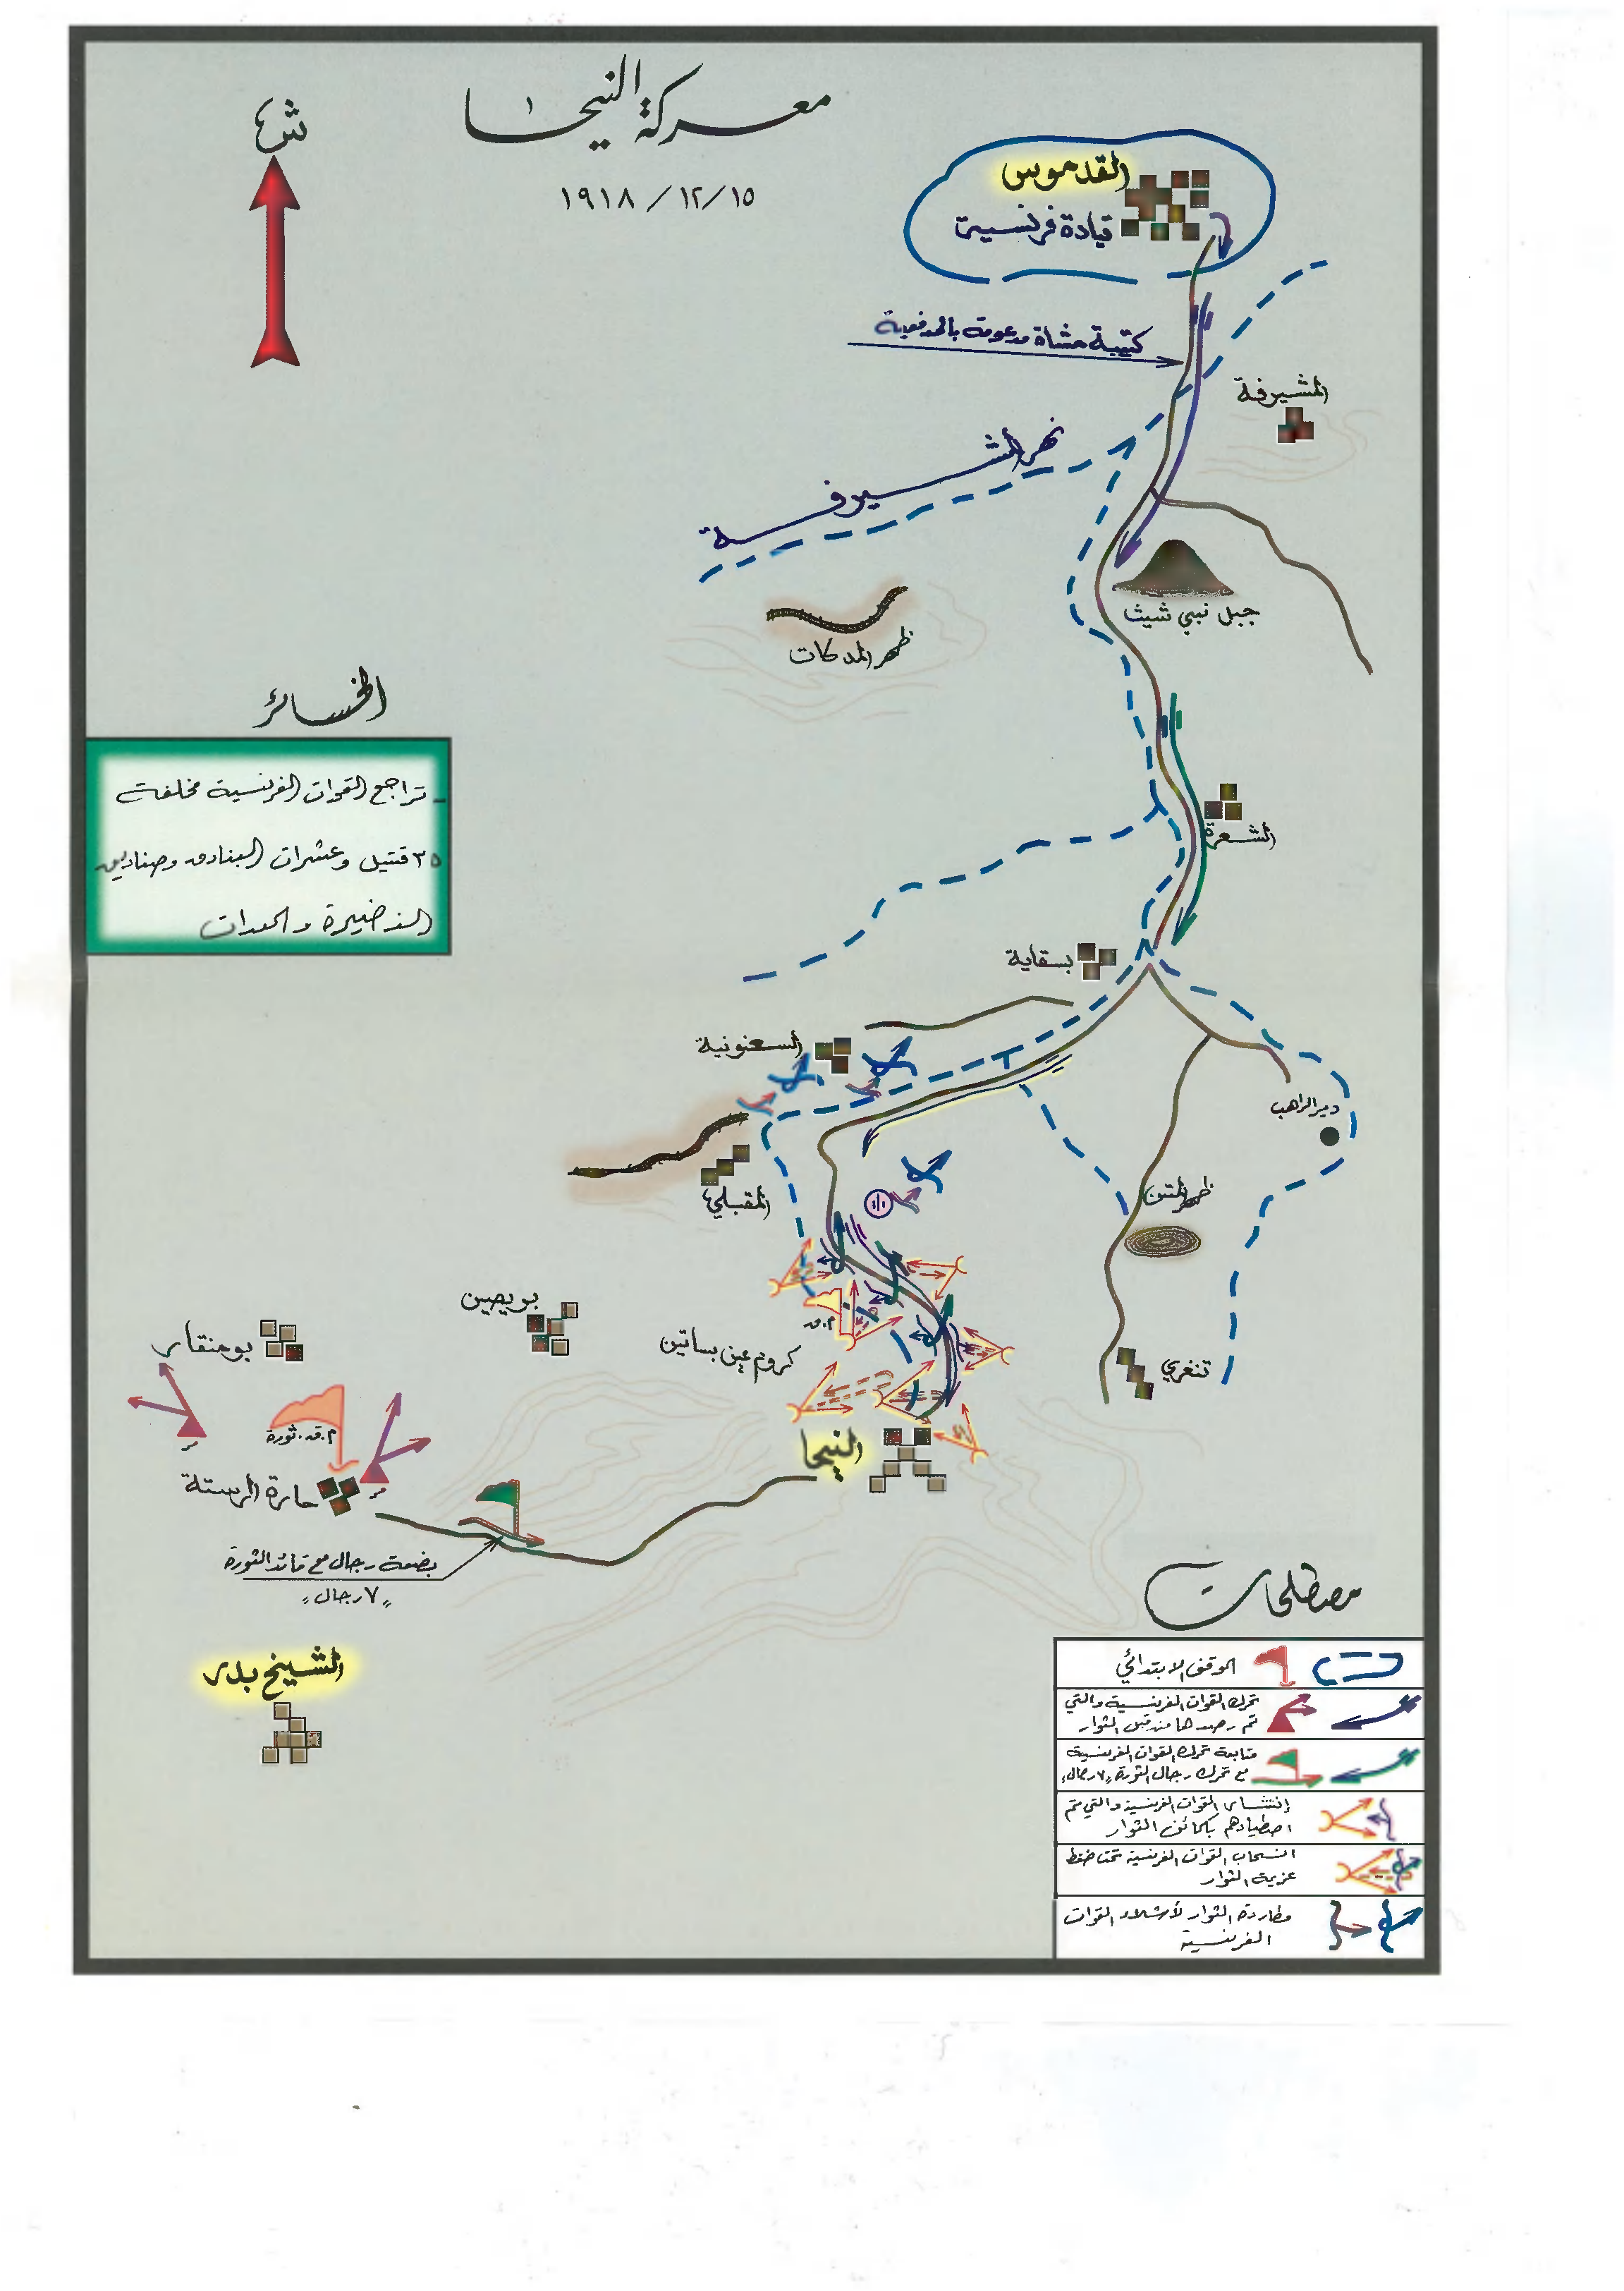 معركة النيحا
١٩١٨/١٢/١٥
القدموس
قيادة فرنسية
كتيبة مشاة مدعومة بالمدفعية
المشيرفة
نهر المشيرفة
جبل نبي شيث
ظهر المدكات
الخسائر
- تراجع القوات الفرنسية مخلفة
٣٥ قتيل وعشرات البنادق وصناديق
الذخيرة والمعدات
الشعرة
بسقاية
السعنونية
دير الراهب
المقبلي
ظهر المتن
بويصين
م.ق
كروم عين بساتين
تنغري
بو منقار
م.ق. ثورة
النيحا
حارة الرستة
بضعة رجال مع قائد الثورة
"٧ رجال"
الشيخ بدر
مصطلحات
الموقف الابتدائي
تحرك القوات الفرنسية والتي
تم رصدها من قبل الثوار
متابعة تحرك القوات الفرنسية
مع تحرك رجال الثورة "٧ رجال"
إنتشار القوات الفرنسية والتي تم
اصطيادهم بكمائن الثوار
انسحاب القوات الفرنسية تحت ضغط
عزيمة الثوار
مطاردة الثوار لأشلاء القوات
الفرنسية